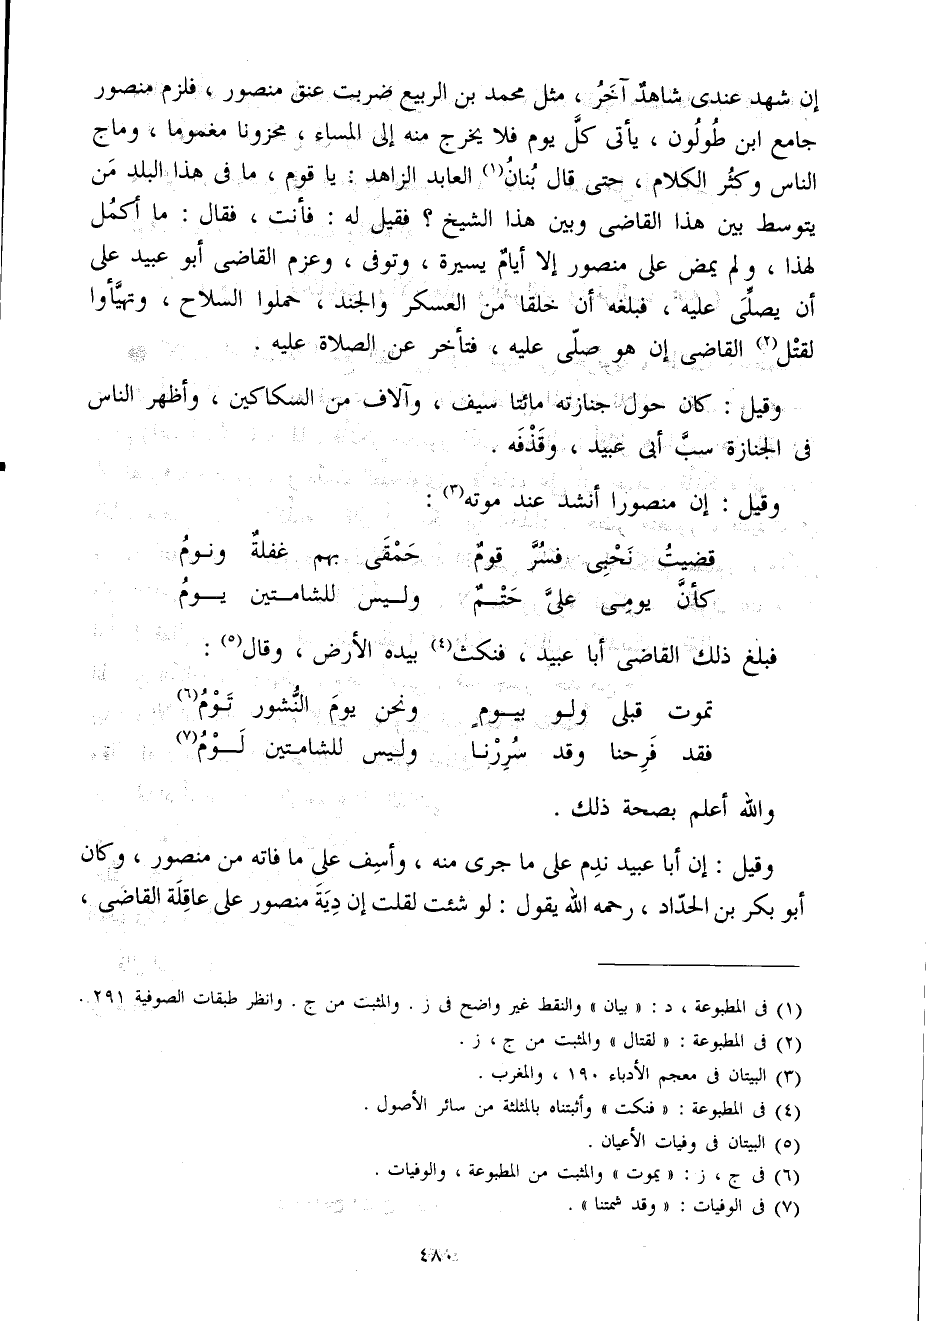 إن شهد عندى شاهدٌ آخَرُ ، مثل محمد بن الربيع ضربت عنق منصور ، فلزم منصور
جامع ابن طُولُون ، يأتى كلَّ يوم فلا يخرج منه إلى المساء ، محزونا مغموما ، وماج
الناس وكثُر الكلام ، حتى قال بُنانُ(١) العابد الزاهد : يا قوم ، ما فى هذا البلد مَن
يتوسط بين هذا القاضى وبين هذا الشيخ ؟ فقيل له : فأنت ، فقال : ما أكمُل
لهذا ، ولم يمض على منصور إلا أيامٌ يسيرة ، وتوفى ، وعزم القاضى أبو عبيد على
أن يصلِّىَ عليه ، فبلغه أن خلقا من العسكر والجند ، حملوا السلاح ، وتهيَّأوا
لقتْل(٢) القاضى إن هو صلّى عليه ، فتأخر عن الصلاة عليه .
وقيل : كان حول جنازته مائتا سيف ، وآلاف من السكاكين ، وأظهر الناس
فى الجنازة سبَّ أبى عبيد ، وقَذْفَه .
وقيل : إن منصورا أنشد عند موته(٣) :
قضيتُ نَحْبِى فسُرَّ قومٌ حَمْقَى بهم غفلةٌ ونومُ
كأنَّ يومِى علىَّ حَتْمٌ وليس للشامتين يومُ
فبلغ ذلك القاضى أبا عبيد ، فنكث(٤) بيده الأرض ، وقال(٥) :
تموت قبلى ولو بيومٍ ونحن يومَ النُّشور تَوْمُ(٦)
فقد فَرِحنا وقد سُرِرْنا وليس للشامتين لَوْمُ(٧)
والله أعلم بصحة ذلك .
وقيل : إن أبا عبيد ندِم على ما جرى منه ، وأسِف على ما فاته من منصور ، وكان
أبو بكر بن الحدّاد ، رحمه الله يقول : لو شئت لقلت إن دِيَةَ منصور على عاقِلَة القاضى ،
(١) فى المطبوعة ، د : « بيان » والنقط غير واضح فى ز . والمثبت من ج . وانظر طبقات الصوفية ٢٩١ .
(٢) فى المطبوعة : « لقتال » والمثبت من ج ، ز .
(٣) البيتان فى معجم الأدباء ١٩٠ ، والمغرب .
(٤) فى المطبوعة : « فنكت » وأثبتناه بالمثلثة من سائر الأصول .
(٥) البيتان فى وفيات الأعيان .
(٦) فى ج ، ز : « يموت » والمثبت من المطبوعة ، والوفيات .
(٧) فى الوفيات : « وقد شمتنا » .
٤٨٠